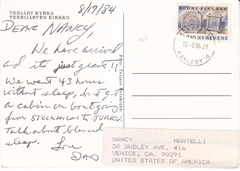 TERJÄRV KYRKA
TEERIJÄRVEN KIRKKO
8/17/84
DEAR NANCY,
We have arrived
and its just great!!
We went 43 hours
without sleep, but got
a cabin on boat going
from STOCKHOLM to TURKU.
Talk about blessed
sleep. Love
DAD
SUOMI FINLAND
NANCY MARTELLI
30 DUDLEY AVE. #16
VENICE, CA. 90291
UNITED STATES OF AMERICA